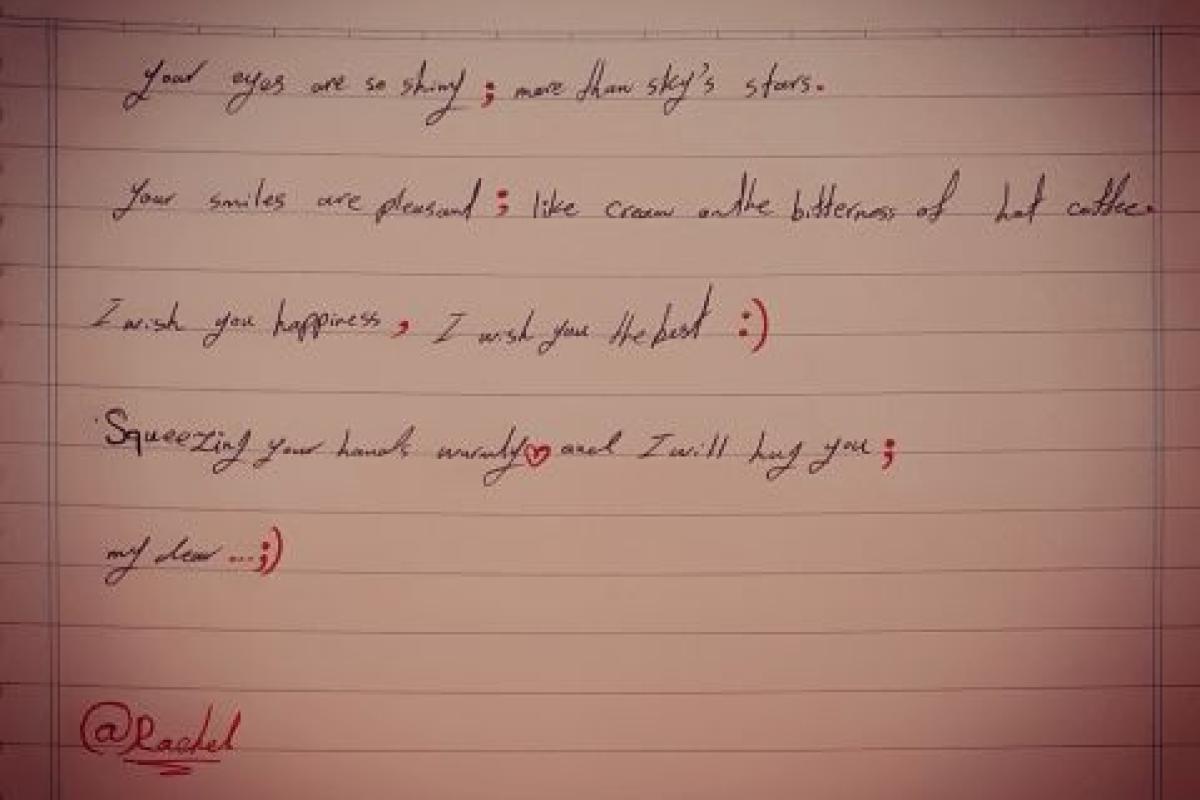 Your eyes are so shiny ; more than sky's stars.
Your smiles are pleasant ; like cream on the bitterness of hot coffee.
I wish you happiness , I wish you the best :)
Squeezing your hands warmly♡ and I will hug you ;
my dear ...;)
@Rachel